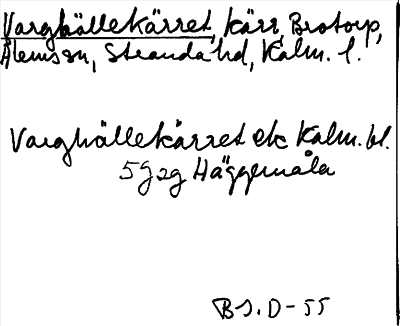 Varghällekärret, kärr, Brotorp,
Ålems sn, Stranda hd, Kalm. l.
Varghällekärret ek Kalm. bl.
5 g 2 g Häggemåla
BS. D-55